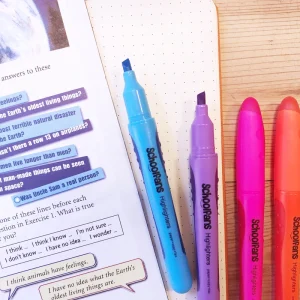 answers to these
eelings?
the Earth's oldest living things?
most terrible natural disaster
the Earth?
n't there a row 13 on airplanes?
men live longer than men?
man-made things can be seen
space?
Was Uncle Sam a real person?
one of these lines before each
uestion in Exercise 1. What is true
you?
I think ... I think I know ... I'm not sure ...
I don't know ... I have no idea ... I wonder ...
I think animals have feelings.
I have no idea what the Earth's
oldest living things are.
Schoolfans
Highlighters
Schoolfans
Highlighters
Schoolfans
Highlighters
Schoolfans
Highlighters